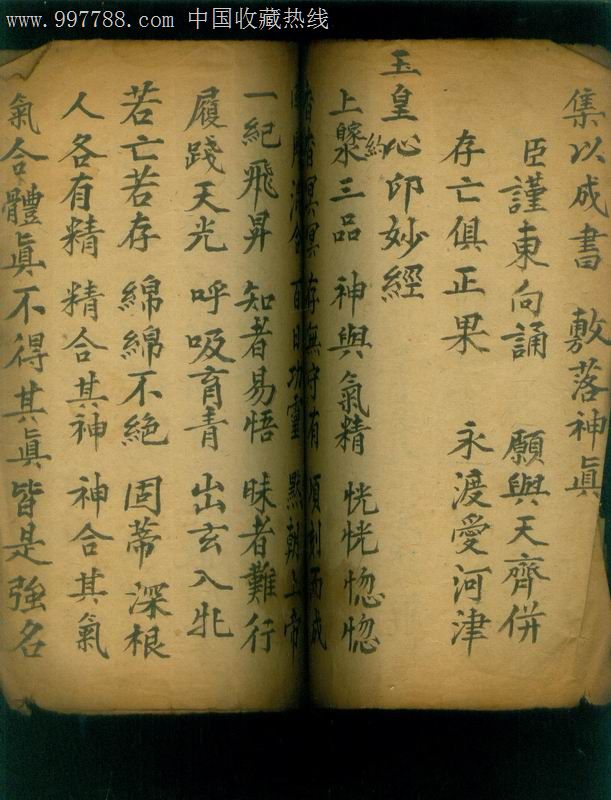 www.997788.com 中国收藏热线
集以成書 敷落神眞
臣謹東向誦 願與天齊併
存亡俱正果 永渡愛河津
玉皇心印妙經
上 約 三品 神與氣精 恍恍惚惚
杳杳冥冥 存無守有 頃刻而成
回風混合 百日功靈 默朝上帝
一紀飛昇 知者易悟 昧者難行
履踐天光 呼吸育青 出玄入牝
若亡若存 綿綿不絶 固蒂深根
人各有精 精合其神 神合其氣
氣合體眞 不得其眞 皆是強名